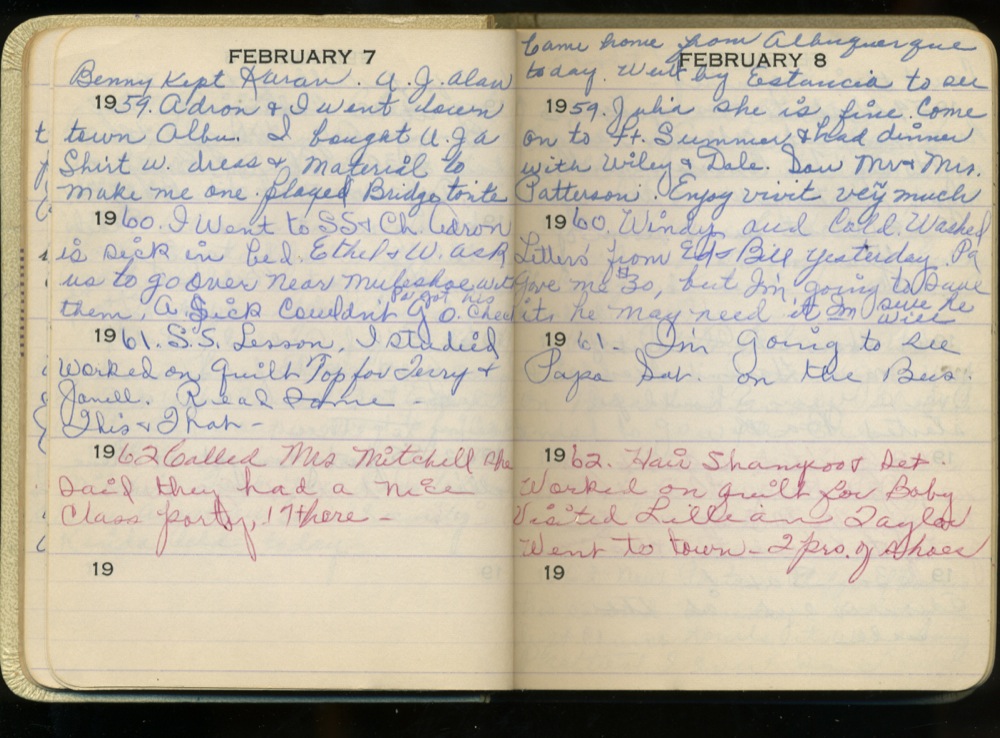 FEBRUARY 7
Benny Kept Karan. U. J. Alan
1959. Adron & I went down
town Albu. I bought U. J a
Shirt w. dress & Material to
make me one. played Bridge tonite
1960. I Went to SS & Ch. Adron
is sick in bed. Ethel & W. ask
us to go over near Muleshoe with
them, A. Sick Couldn't go. Pa got his Check
1961. S.S. Lesson, I studied
Worked on quilt Top for Terry &
Janell. Read Some
This & That -
1962 Called Mrs Mitchell she
said they had a nice
Class party, 17 there -
19
FEBRUARY 8
Came home from Albuquerque
today. Went by Estancia to see
1959. Julia she is fine. Come
on to Ft. Sumner & had dinner
with Wiley & Dale. Saw Mr & Mrs.
Patterson. Enjoy visit very much
1960. Windy and Cold. Washed
Letters from Ed & Bill yesterday. Pa
gave me $30, but I'm going to Save
it, he may need it I'm sure he will
1961. I'm Going to see
Papa Sat. on the Bus.
1962. Hair Shampoo & Set.
Worked on quilt for Baby
Visited Lillian Taylor
Went to town - 2 prs. of shoes
19